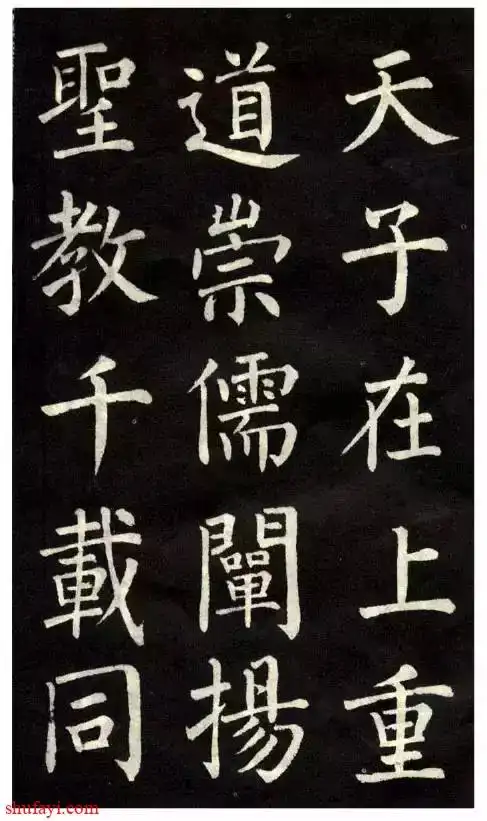 天子在上重
道崇儒闡揚
聖教千載同
shufayi.com